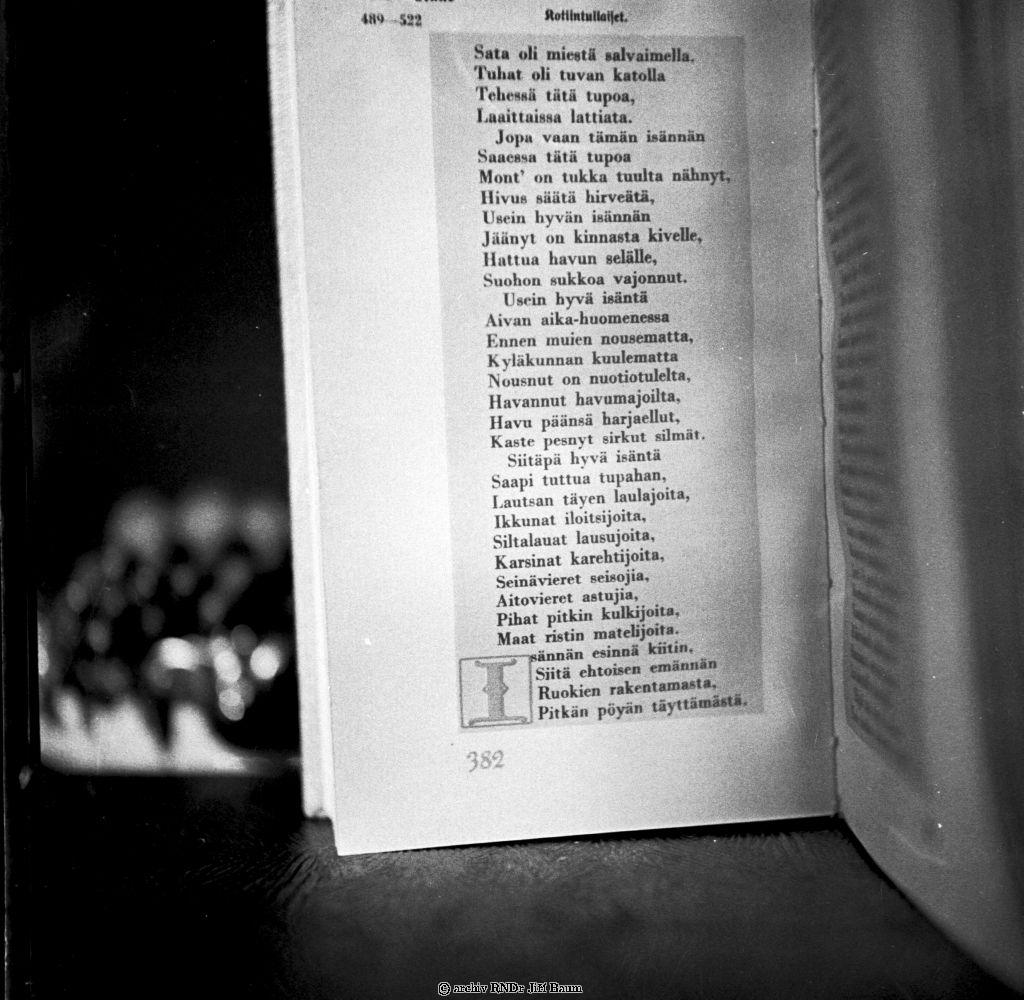 489–522
Kotiintuliaiset.
Sata oli miestä salvaimella,
Tuhat oli tuvan katolla
Tehessä tätä tupoa,
Laaittaissa lattiata.
Jopa vaan tämän isännän
Saaessa tätä tupoa
Mont' on tukka tuulta nähnyt,
Hivus säätä hirveätä,
Usein hyvän isännän
Jäänyt on kinnasta kivelle,
Hattua havun selälle,
Suohon sukkoa vajonnut.
Usein hyvä isäntä
Aivan aika-huomenessa
Ennen muien nousematta,
Kyläkunnan kuulematta
Nousnut on nuotiotulelta,
Havannut havumajoilta,
Havu päänsä harjaellut,
Kaste pesnyt sirkut silmät.
Siitäpä hyvä isäntä
Saapi tuttua tupahan,
Lautsan täyen laulajoita,
Ikkunat iloitsijoita,
Siltalauat lausujoita,
Karsinat karehtijoita,
Seinävieret seisojia,
Aitovieret astujia,
Pihat pitkin kulkijoita,
Maat ristin matelijoita.
Isännän esinnä kiitin,
Siitä ehtoisen emännän
Ruokien rakentamasta,
Pitkän pöyän täyttämästä.
382
© archiv RNDr Jiří Baum